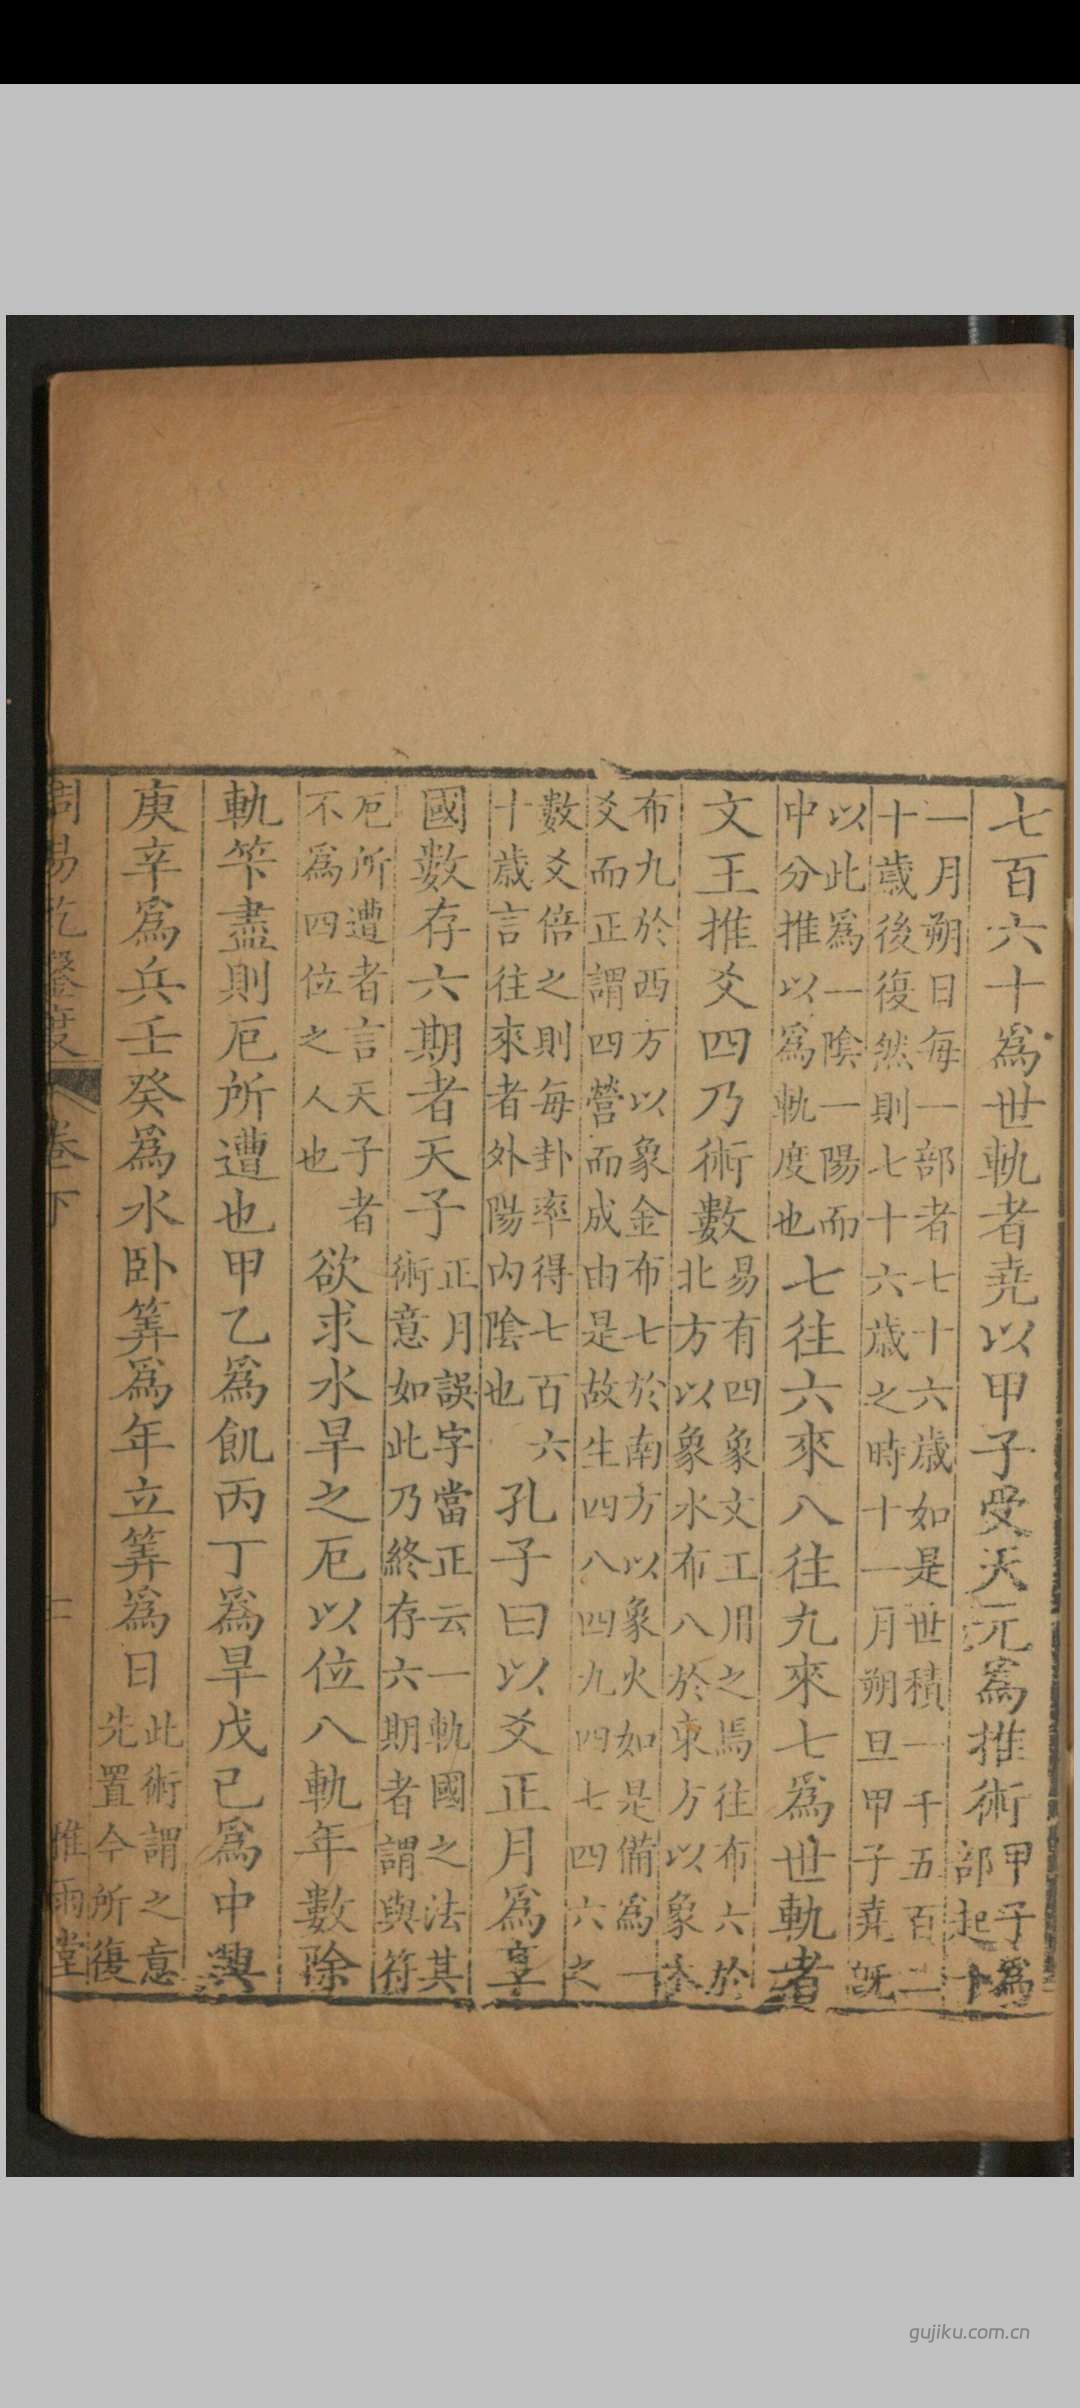 七百六十為世軌者堯以甲子受天元為推術甲子為部起十
一月朔日每一部者七十六歲如是世積一千五百二
十歲後復然則七十六歲之時十一月朔旦甲子堯既
以此為一陰一陽而
中分推以為軌度也七往六來八往九來七為世軌者
文王推爻四乃術數易有四象文王用之焉往布六於
北方以象水布八於東方以象木
布九於西方以象金布七於南方以象火如是備為一
爻而正謂四營而成由是故生四八四九四七四六之
數爻倍之則每卦率得七百六
十歲言往來者外陽內陰也孔子曰以爻正月為享
國數存六期者天子正月誤字當正云一軌國之法其
術意如此乃終存六期者謂與符
厄所遭者言天子者
不為四位之人也欲求水旱之厄以位八軌年數除
軌筭盡則厄所遭也甲乙為飢丙丁為旱戊己為中興
庚辛為兵壬癸為水臥筭為年立筭為日此術謂之意
先置今所復
周易乾鑿度
卷下
二
雅雨堂
gujiku.com.cn